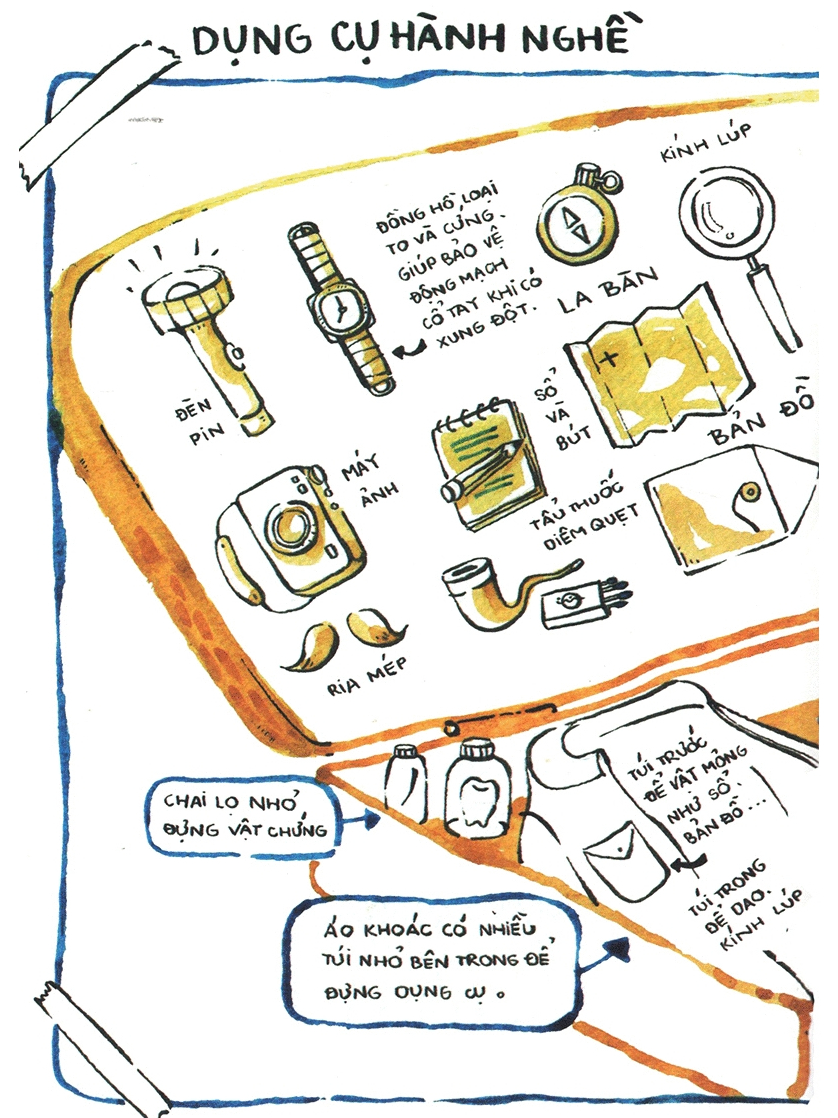 DỤNG CỤ HÀNH NGHỀ
KÍNH LÚP
ĐỒNG HỒ LOẠI
TO VÀ CỨNG
GIÚP BẢO VỆ
ĐỘNG MẠCH
CỔ TAY KHI CÓ
XUNG ĐỘT.
LA BÀN
ĐÈN
PIN
SỔ
VÀ
BÚT
BẢN ĐỒ
MÁY
ẢNH
TẨU THUỐC
DIÊM QUẸT
RIA MÉP
TÚI TRƯỚC
ĐỂ VẬT MỎNG
NHƯ SỔ,
BẢN ĐỒ...
CHAI LỌ NHỎ
ĐỰNG VẬT CHỨNG
TÚI TRONG
ĐỂ DAO.
KÍNH LÚP
ÁO KHOÁC CÓ NHIỀU
TÚI NHỎ BÊN TRONG ĐỂ
ĐỰNG DỤNG CỤ.